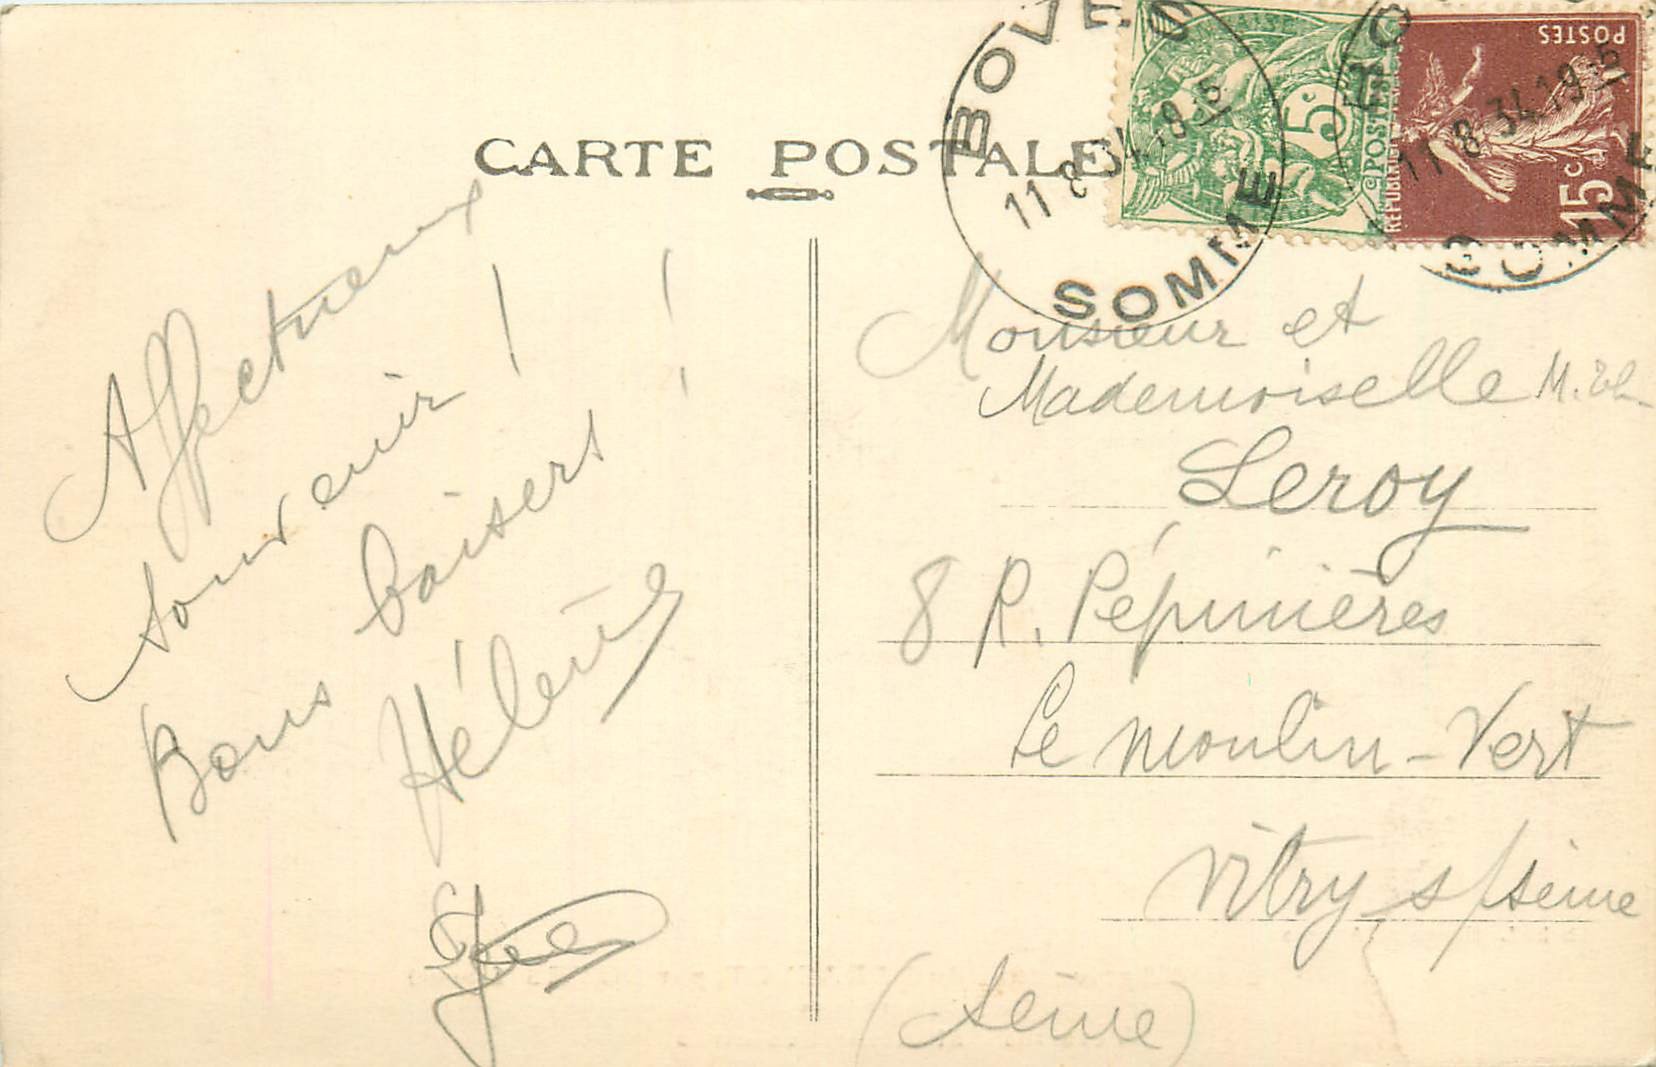 CARTE POSTALE
BOVES
11 8.34.18-5
SOMME
5c
POSTES
POSTES
11 8.34.19-5
15c
SOMME
Affectueux
souvenir !
Bons baisers !
Hélène
Monsieur et
Mademoiselle
Leroy
8 R. Pépinières
Le Moulin-Vert
Vitry s/Seine
(Seine)